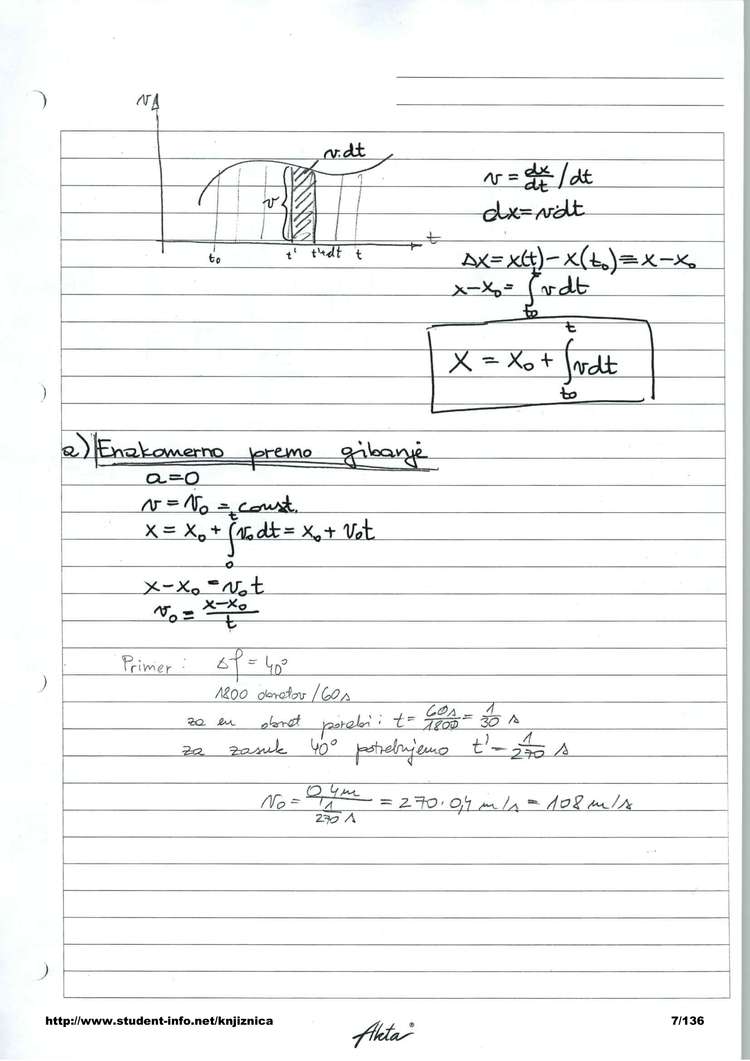 v
v·dt
v
t
t₀ t' t'+dt t
v = dx/dt /dt
dx = v·dt
Δx = x(t) - x(t₀) ≡ x - x₀
x - x₀ = ∫_{t₀}^{t} v dt
x = x₀ + ∫_{t₀}^{t} v dt
a) Enakomerno premo gibanje
a = 0
v = v₀ = const.
x = x₀ + ∫_{0}^{t} v₀ dt = x₀ + v₀t
x - x₀ = v₀ t
v₀ = (x - x₀)/t
Primer: Δφ = 40°
1800 obratov / 60 s
za en obrat porabi: t = 60s/1800 = 1/30 s
za zasuk 40° potrebujemo t' = 1/270 s
v₀ = 0,4m / (1/270 s) = 270·0,4 m/s = 108 m/s
http://www.student-info.net/knjiznica
Akta®
7/136